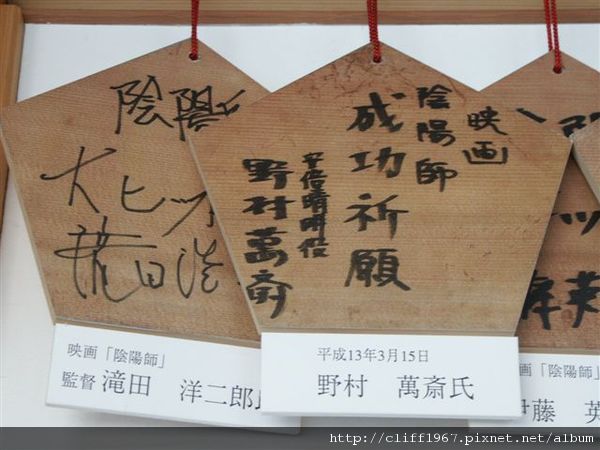 陰陽
大ヒッ
滝田洋
映画「陰陽師」
監督 滝田 洋二郎
映画
陰陽師
成功祈願
安倍晴明役
野村萬斎
平成13年3月15日
野村 萬斎氏
画「陰陽師」
伊藤 英
http://cliff1967.pixnet.net/album